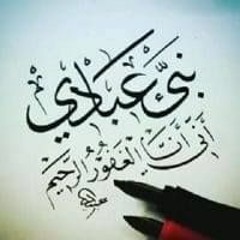 نبئ عبادي
أني أنا الغفور الرحيم